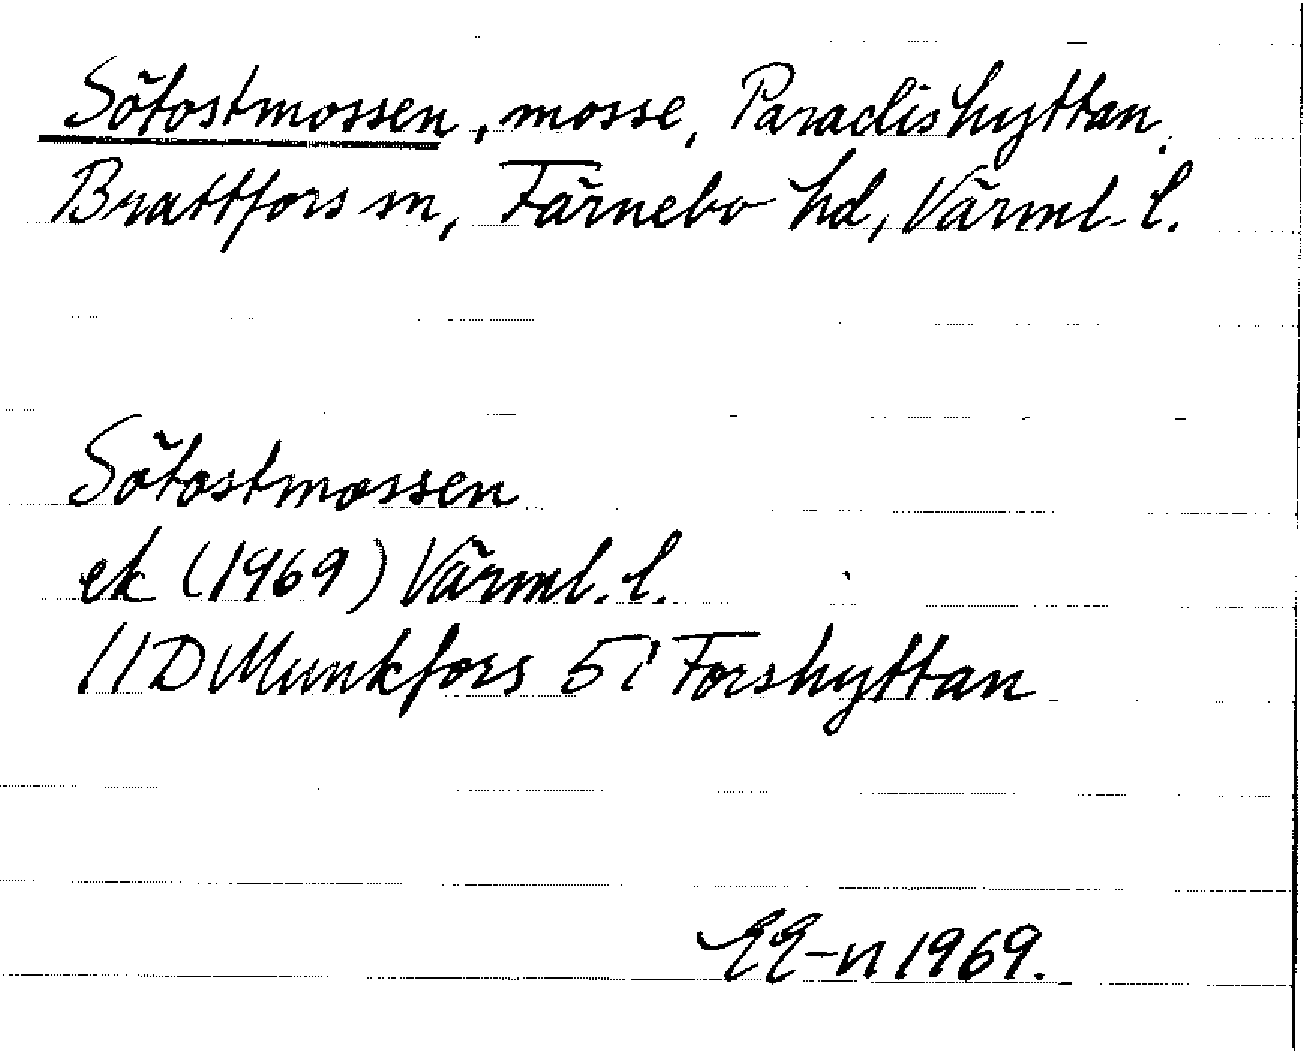 Sötostmossen, mosse, Paradishyttan,
Brattfors sn, Färnebo hd, Värml. l.
Sötostmossen
ek (1969) Värml. l.
11D Munkfors 5i Forshyttan
EE-n 1969.